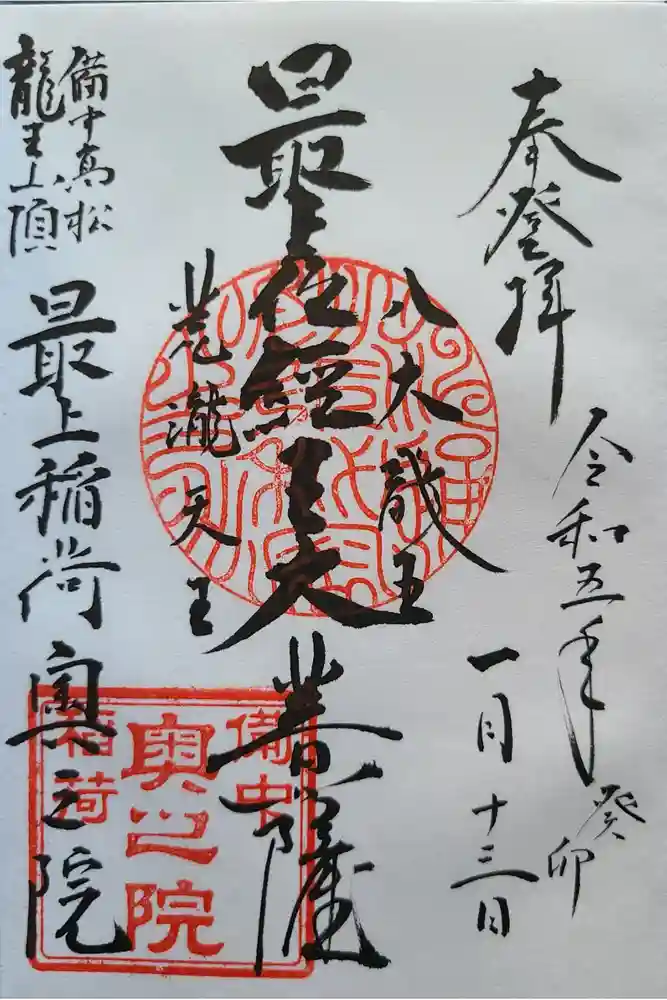 奉登拝
令和五年 癸卯
一月十三日
八大龍王
最上位経王大菩薩
荒瀧天王
備中高松
龍王山頂
最上稲荷奥之院
備中
奥之院
稲荷